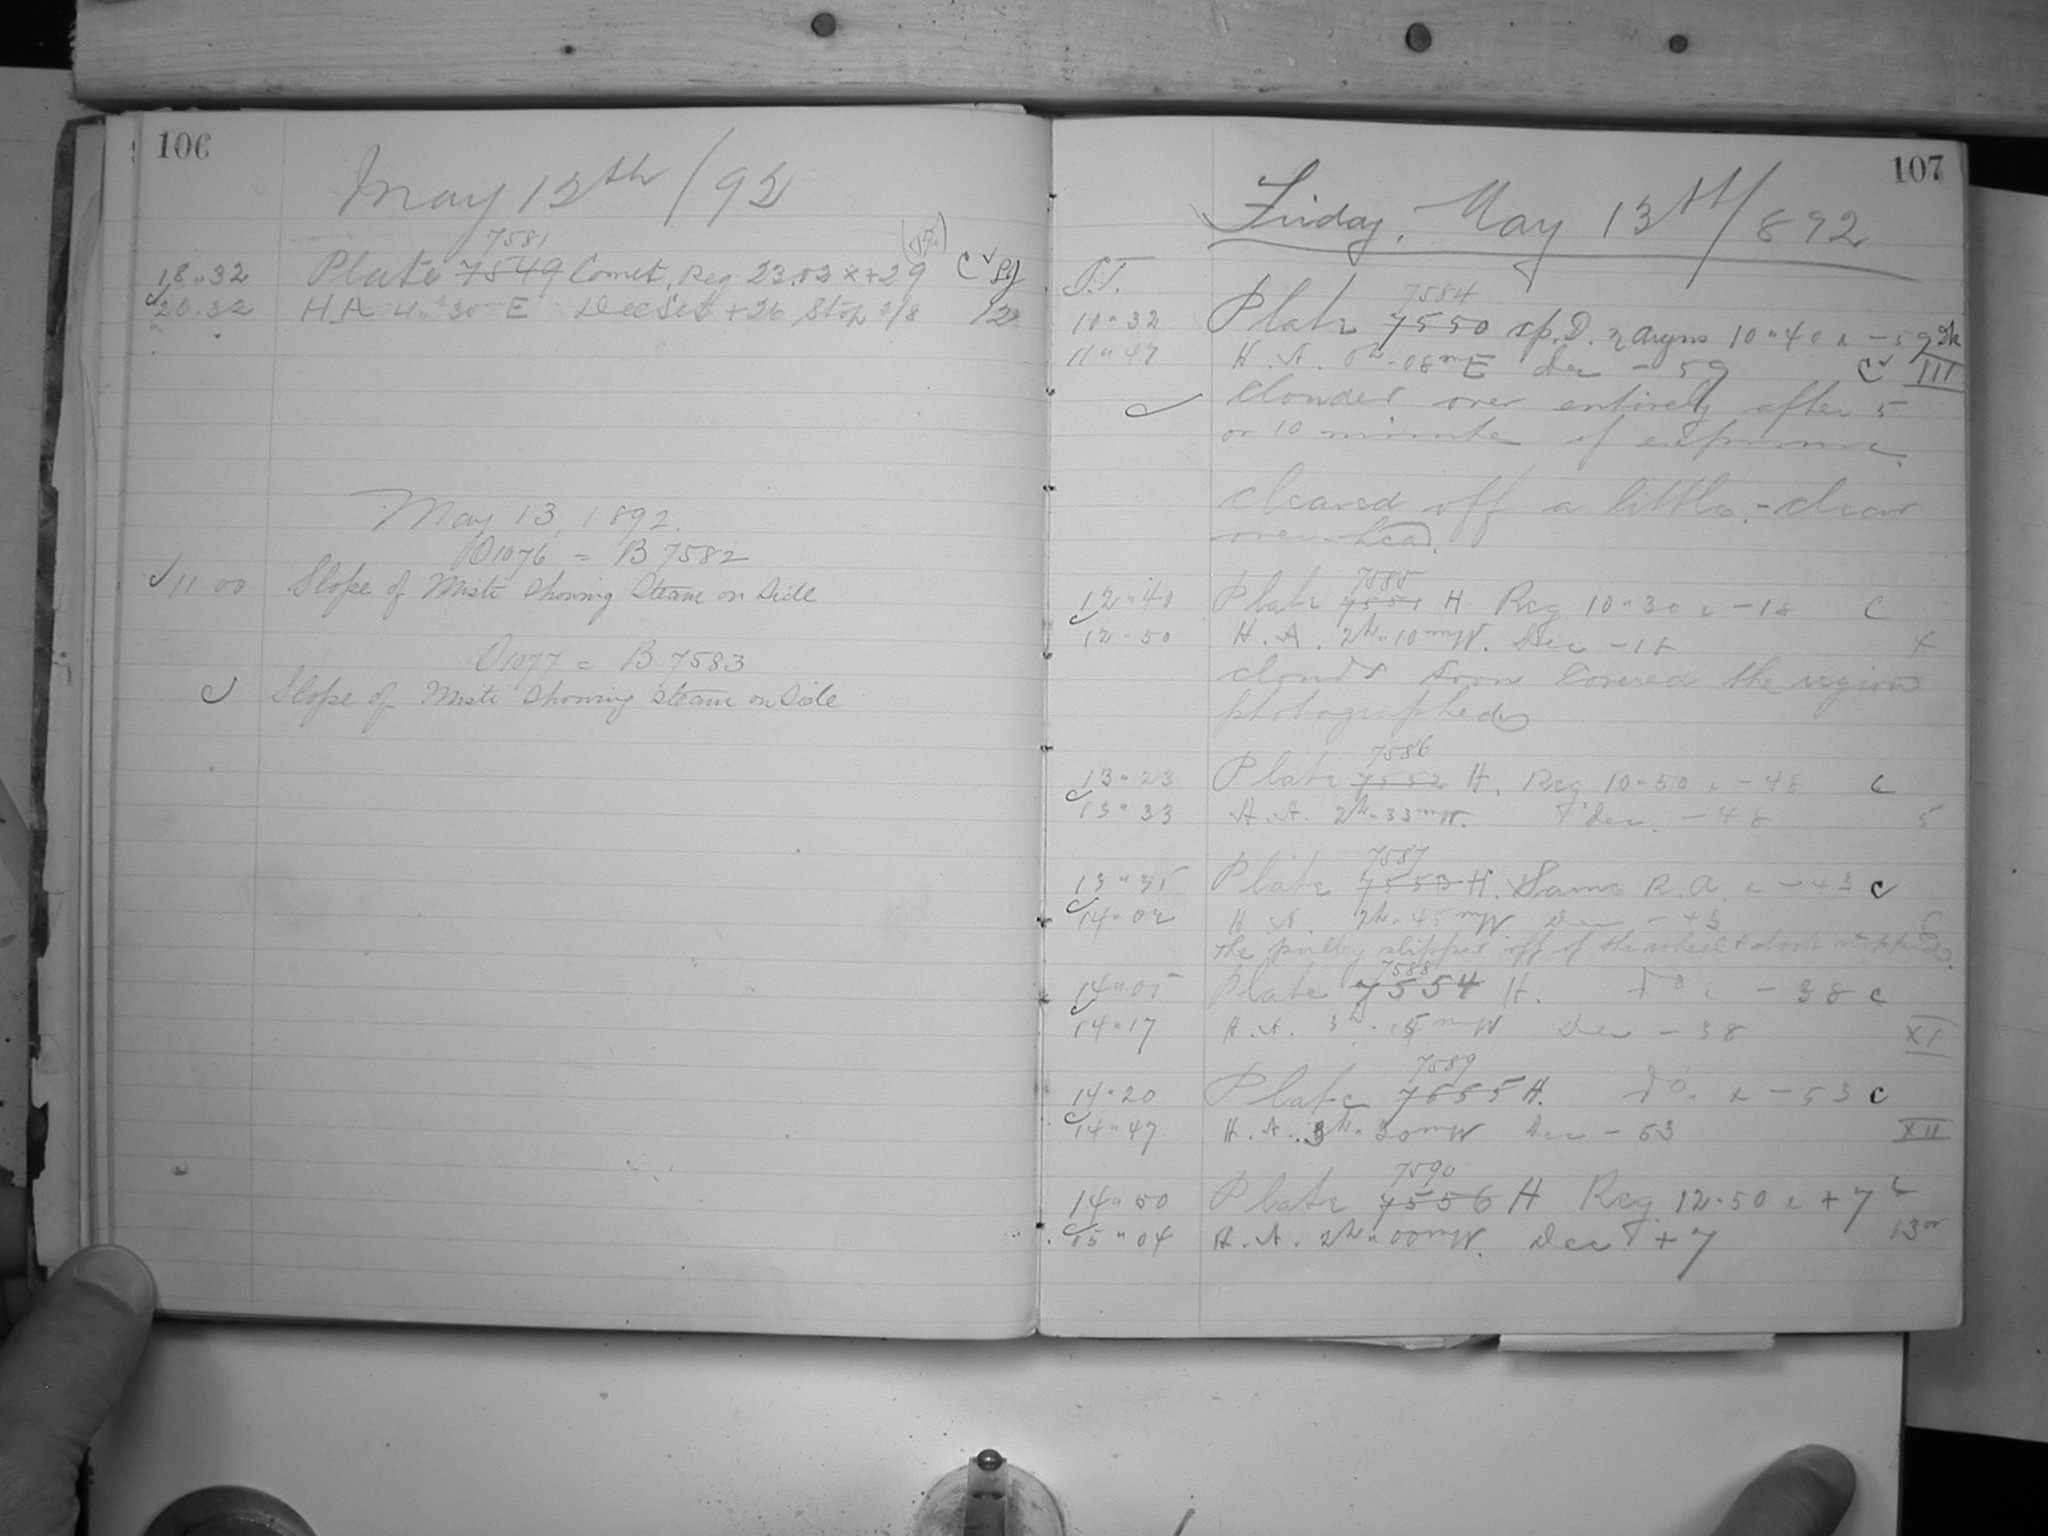 106
May 12th/92
7581
18"32 Plate 7549 Comet, Reg 23.03 x +29 C
20.32 HA 4h"30 E Dec Set +26 Stop 3/8 12
May 13, 1892.
O1076 = B 7582
11 00 Slope of Misti Showing Steam on Side
O1077 = B 7583
Slope of Misti Showing steam on Side
107
Friday, May 13th/892
S.T.
7584
10"32 Plate 7550 sp. D. η Argus 10"40 x -59
11"47 H.A. 0h"08mE Dec -59 C III
Clouded over entirely after 5
or 10 minutes of exposure.
cleared off a little, - clear
overhead.
7585
12"40 Plate 7551 H Reg 10"30 x -18 C
12"50 H.A. 2h"10mW. Dec -18 4
clouds soon covered the region
photographed
7586
13"23 Plate 7552 H. Reg 10"50 x -48 C
13"33 H.A. 2h"33mW. Dec. -48 5
7587
13"35 Plate 7553 H. Same R.A. x -43 C
14"02 H.A. 2h"45mW Dec -43
The pulley slipped off of the wheel & clock stopped.
7588
14"05 Plate 7554 H. do x -38 C
14"17 H.A. 3h" mW Dec -38 XI
7589
14"20 Plate 7555 H. do. x -53 C
14"47 H.A. 3h"30mW Dec -53 XII
7590
14"50 Plate 7556 H Reg 12"50 x +7 C
15"04 H.A. 2h"00mW. Dec +7 13